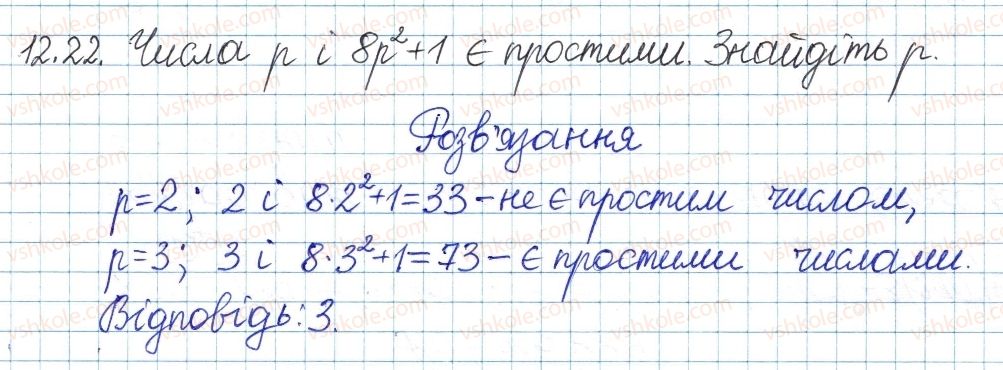 12.22. Числа p і 8p²+1 є простими. Знайдіть p.
Розв'язання
p=2; 2 і 8·2²+1=33 – не є простим числом,
p=3; 3 і 8·3²+1=73 – є простими числами.
Відповідь: 3.